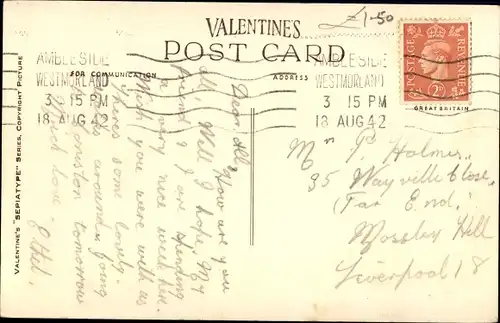 VALENTINE'S
£1-50
POST CARD
FOR COMMUNICATION
ADDRESS
AMBLESIDE
WESTMORLAND
3 15 PM
18 AUG 42
AMBLESIDE
WESTMORLAND
3 15 PM
18 AUG 42
POSTAGE
REVENUE
2D
GREAT BRITAIN
VALENTINE'S "SEPIATYPE" SERIES, COPYRIGHT PICTURE
Dear All,
How are you
all, Well I hope. My
friend & I are spending
a very nice week here.
Wish you were with us
Theres some lovely
around. Going
Coniston tomorrow
Much love. Ethel.
Mrs P. Holmes
35 Wayville Close
(Far End.)
Mossley Hill
Liverpool 18